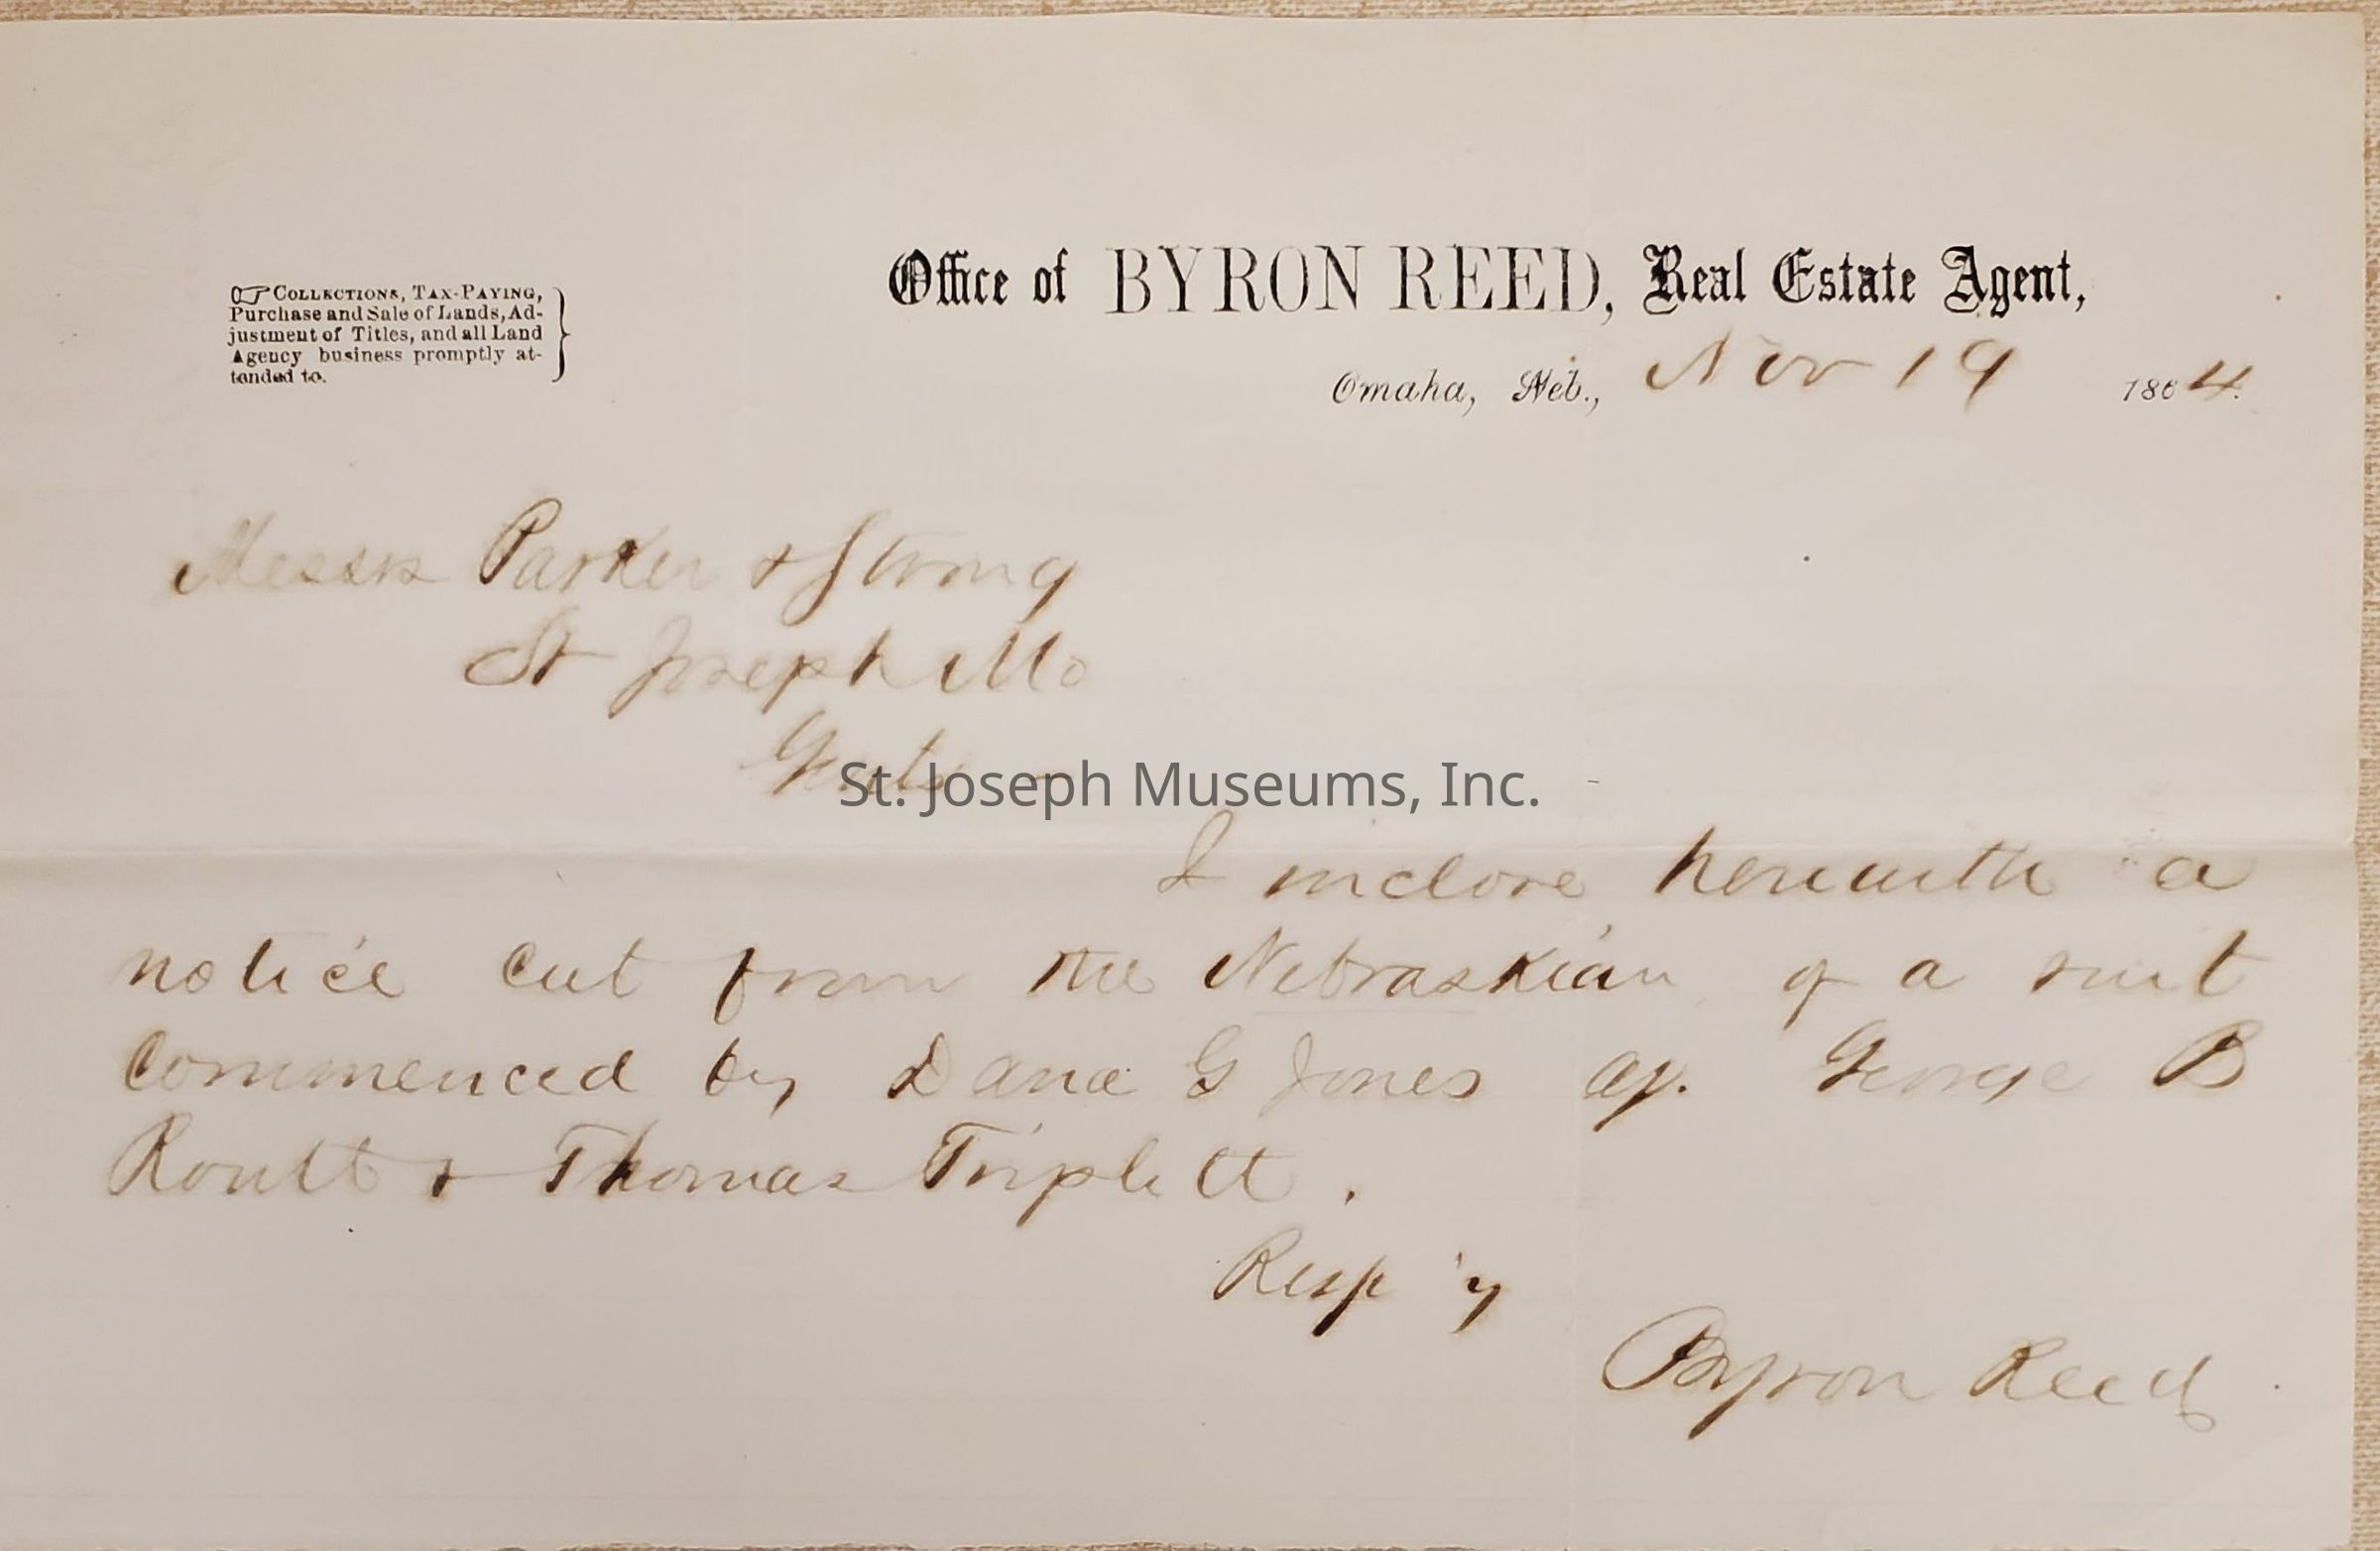 Office of BYRON REED, Real Estate Agent,
☞ COLLECTIONS, TAX-PAYING,
Purchase and Sale of Lands, Ad-
justment of Titles, and all Land
Agency business promptly at-
tended to.
Omaha, Neb., Nov 19 1864.
Messrs Parker & Strong
St Joseph Mo
Gents
St. Joseph Museums, Inc.
I inclose herewith a
notice cut from the Nebraskian of a suit
commenced by Dana G Jones ag. George B
Routt & Thomas Triplett.
Resp'y
Byron Reed